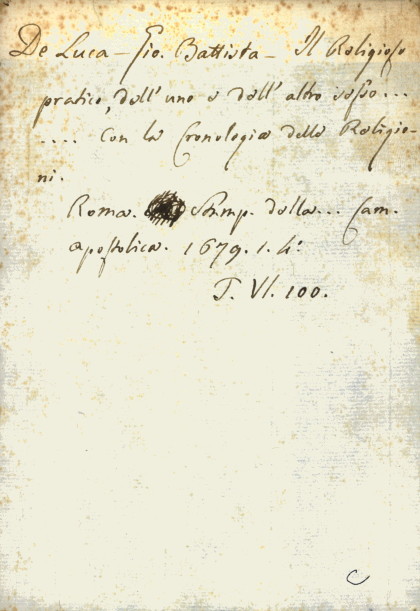 De Luca – Gio. Battista – Il Religioso
pratico, dell' uno e dell' altro sesso...
.... con la Cronologia delle Religio-
ni.
Roma. Stamp. della... Cam.
apostolica. 1679. 1. 4:
T. VI. 100.
C